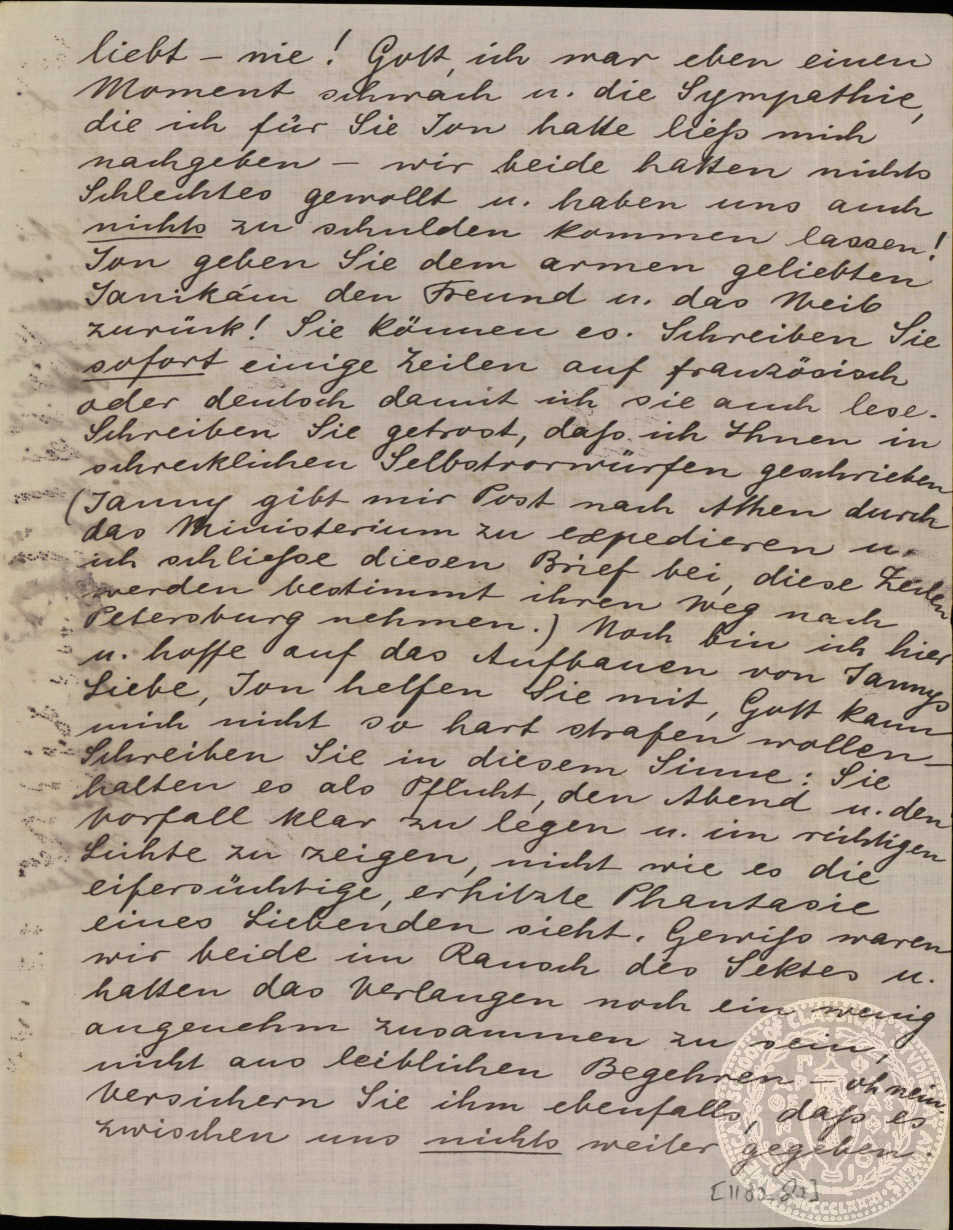 liebt – nie! Gott, ich war eben einen
Moment schwach u. die Sympathie,
die ich für Sie Jon hatte ließ mich
nachgeben – wir beide hatten nichts
Schlechtes gewollt u. haben uns auch
nichts zu schulden kommen lassen!
Jon geben Sie dem armen geliebten
Janikám den Freund u. das Weib
zurück! Sie können es. Schreiben Sie
sofort einige Zeilen auf französisch
oder deutsch damit ich sie auch lese.
Schreiben Sie getrost, daß ich Ihnen in
schrecklichen Selbstvorwürfen geschrieben
(Janny gibt mir Post nach Athen durch
das Ministerium zu expedieren u.
ich schließe diesen Brief bei, diese Zeilen
werden bestimmt ihren Weg nach
Petersburg nehmen.) Noch bin ich hier
u. hoffe auf das Aufbauen von Jannys
Liebe, Jon helfen Sie mit, Gott kann
mich nicht so hart strafen wollen –
Schreiben Sie in diesem Sinne: Sie
halten es als Pflicht, den Abend u. den
Vorfall klar zu legen u. im richtigen
Lichte zu zeigen, nicht wie es die
eifersüchtige, erhitzte Phantasie
eines Liebenden sieht. Gewiß waren
wir beide im Rausch des Sektes u.
hatten das Verlangen noch ein wenig
angenehm zusammen zu sein,
nicht aus leiblichen Begehren – oh nein.
Versichern Sie ihm ebenfalls, daß es
zwischen uns nichts weiter gegeben.